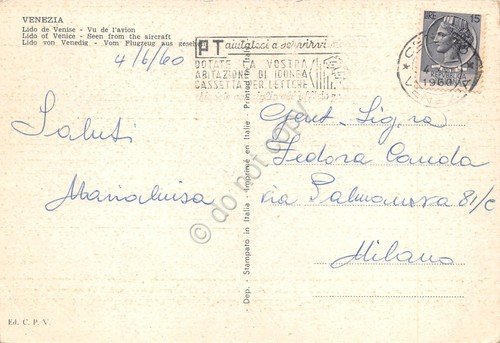 VENEZIA
Lido de Venise - Vu de l'avion
Lido of Venice - Seen from the aircraft
Lido von Venedig - Vom Flugzeug aus gesehen
4/6/60
Saluti
Marialuisa
Ed. C. P. V.
- Dep. - Stampato in Italia - Imprimé en Italie - Printed in Italy
PT aiutateci a servirvi
DOTATE LA VOSTRA
ABITAZIONE DI IDONEA
CASSETTA PER LETTERE
LIRE 15
1960
Gent. Sig.ra
Fedora Canda
via Palmanova 81/c
Milano
© do not copy